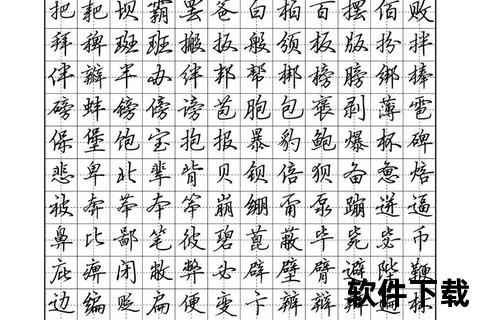 把耙坝霸罢爸白柏百摆佰败
拜稗斑班搬扳般颁板版扮拌
伴瓣半办绊邦帮梆榜膀绑棒
磅蚌镑傍谤苞胞包褒剥薄雹
保堡饱宝抱报暴豹鲍爆杯碑
悲卑北辈背贝钡倍狈备惫焙
被奔苯本笨崩绷甭泵蹦迸逼
鼻比鄙笔彼碧蓖蔽毕毙毖币
庇痹闭敝弊必辟壁臂避陛鞭
边编贬扁便变卞辨辩
软件下载